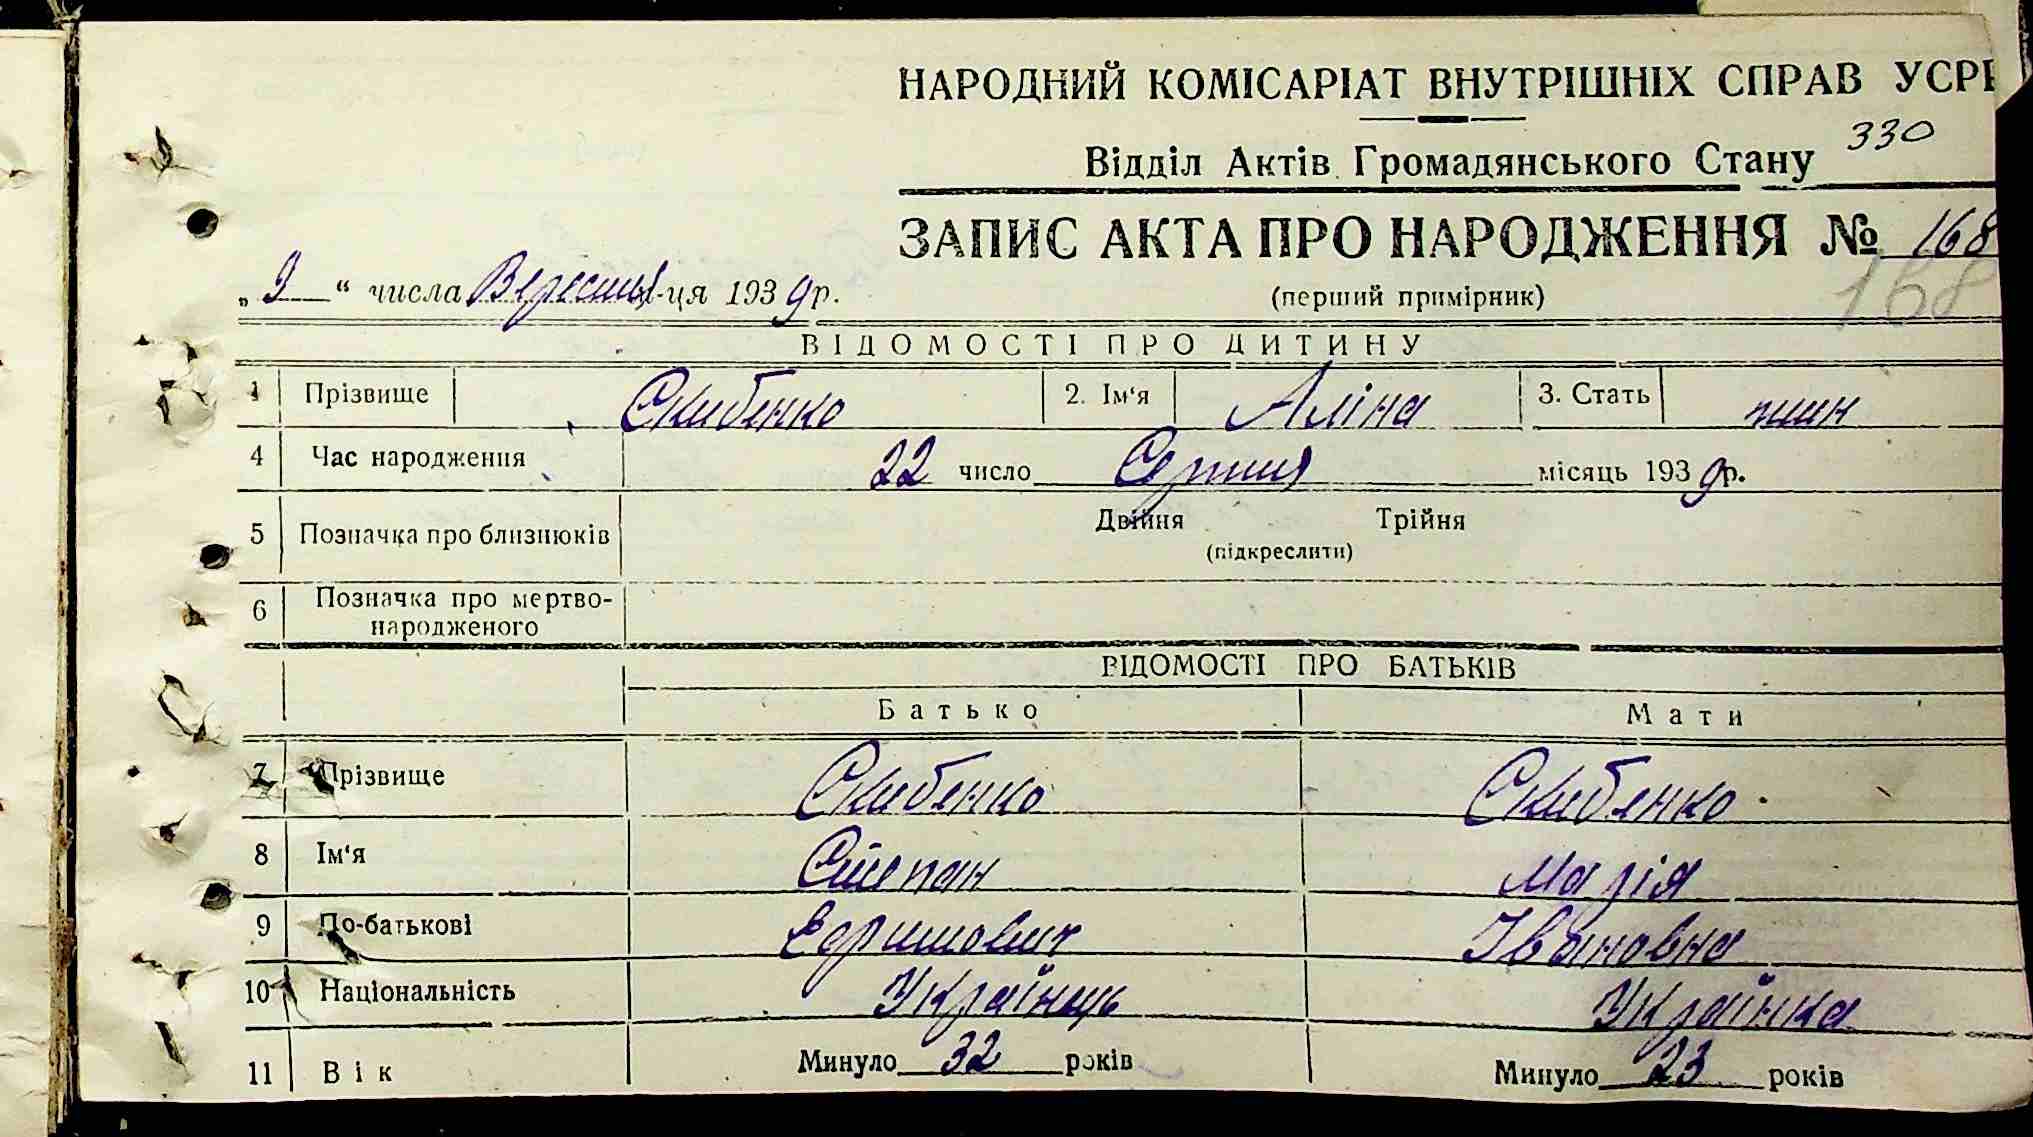 НАРОДНИЙ КОМІСАРІАТ ВНУТРІШНІХ СПРАВ УСРР
330
Відділ Актів Громадянського Стану
ЗАПИС АКТА ПРО НАРОДЖЕННЯ № 168
168
„9“ числа Вересня м-ця 1939 р.
(перший примірник)
ВІДОМОСТІ ПРО ДИТИНУ
1 Прізвище Скибенко 2. Ім‘я Аліна 3. Стать жин
4 Час народження 22 число Серпня місяць 1939 р.
5 Позначка про близнюків Двійня Трійня
(підкреслити)
6 Позначка про мертво-
народженого
ВІДОМОСТІ ПРО БАТЬКІВ
Батько Мати
7 Прізвище Скибенко Скибенко
8 Ім‘я Степан Марія
9 По-батькові Івановна
10 Національність Українець Українка
11 Вік Минуло 32 років Минуло 23 років